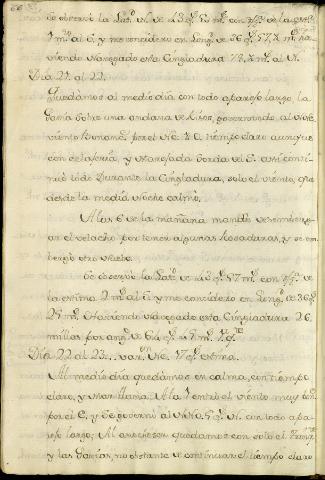 se observó la Latd. N. de 43 gs.
ms. al S. y me considero en Longd. de 36 gs. 57,7 ms. ha
viendo navegado esta Cingladura 78,7 ms. al N.
Dia 21. al 22.
Quedamos al medio dia con todo aparejo largo, la
Gavia sobre una andana de Rizos, governando al
viento Bonancible por el tiempo claro aunque
con celageria, y Marejada gorda del E. asi conti
nuó todo Durante la Cingladura, solo el viento, que
desde la media Noche calmó.
A las 6 de la mañana mandó desembergar
el velacho por tener algunas Rosaduras, y se em
bergó otro nuebo.
Se observó la Latd. de 43 gs. 57 ms. con
la estima 2 ms. al S. y me considero en Longd. de 36 gs.
25 ms. Haviendo navegado esta Cingladura 26
millas por angulo de 64 gs.
Dia 22 al 23.. var.n NE. 17 gs. estima.
Al medio dia quedamos en calma, con tiempo
claro, y Mar llana: A la 1 entró el viento muy
por el E, y se governó al N. con todo apa
rejo largo; Al anochecer quedamos con solo el
y las Gavias, no obstante de continuar el tiempo claro